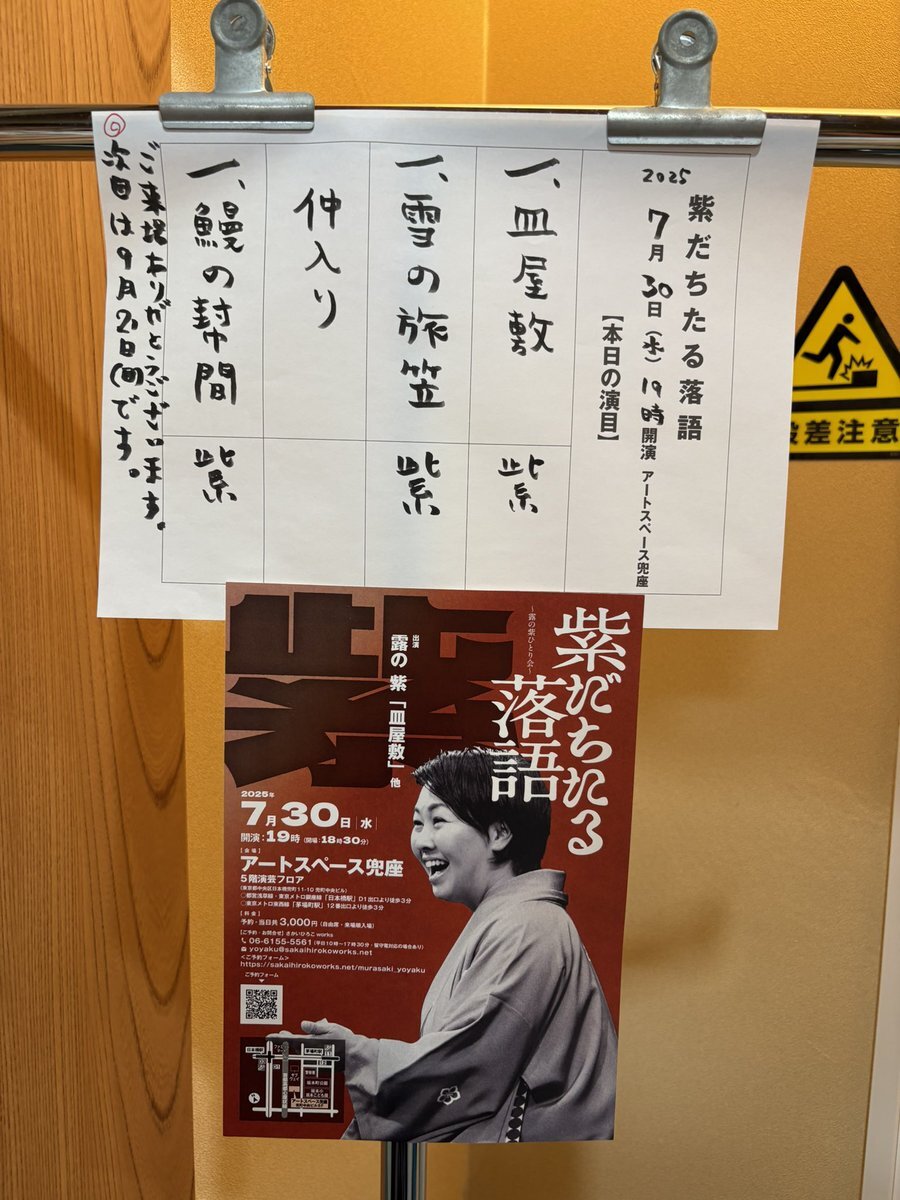 紫だちたる落語
2025
7月30日(水)19時開演 アートスペース兜座
【本日の演目】
一、皿屋敷 紫
一、雪の旅笠 紫
仲入り
一、鰻の幇間 紫
ご来場ありがとうございます。
次回は9月2日(火)です。
段差注意
紫だちたる
落語
~露の紫ひとり会~
紫
出演
露の 紫「皿屋敷」他
2025年
7月30日|水|
開演:19時(開場:18時30分)
[会場]
アートスペース兜座
5階演芸フロア
(東京都中央区日本橋兜町11-10 兜町中央ビル)
○都営浅草線・東京メトロ銀座線「日本橋駅」D1出口より徒歩3分
○東京メトロ東西線「茅場町駅」12番出口より徒歩3分
[料金]
予約・当日共 3,000円(自由席・来場順入場)
[ご予約・お問合せ]さかいひろこworks
06-6155-5561(平日10時~17時30分・留守電対応の場合あり)
yoyaku@sakaihirokoworks.net
<ご予約フォーム>
https://sakaihirokoworks.net/murasaki_yoyaku
ご予約フォーム
日本橋駅
茅場町駅
坂本町公園